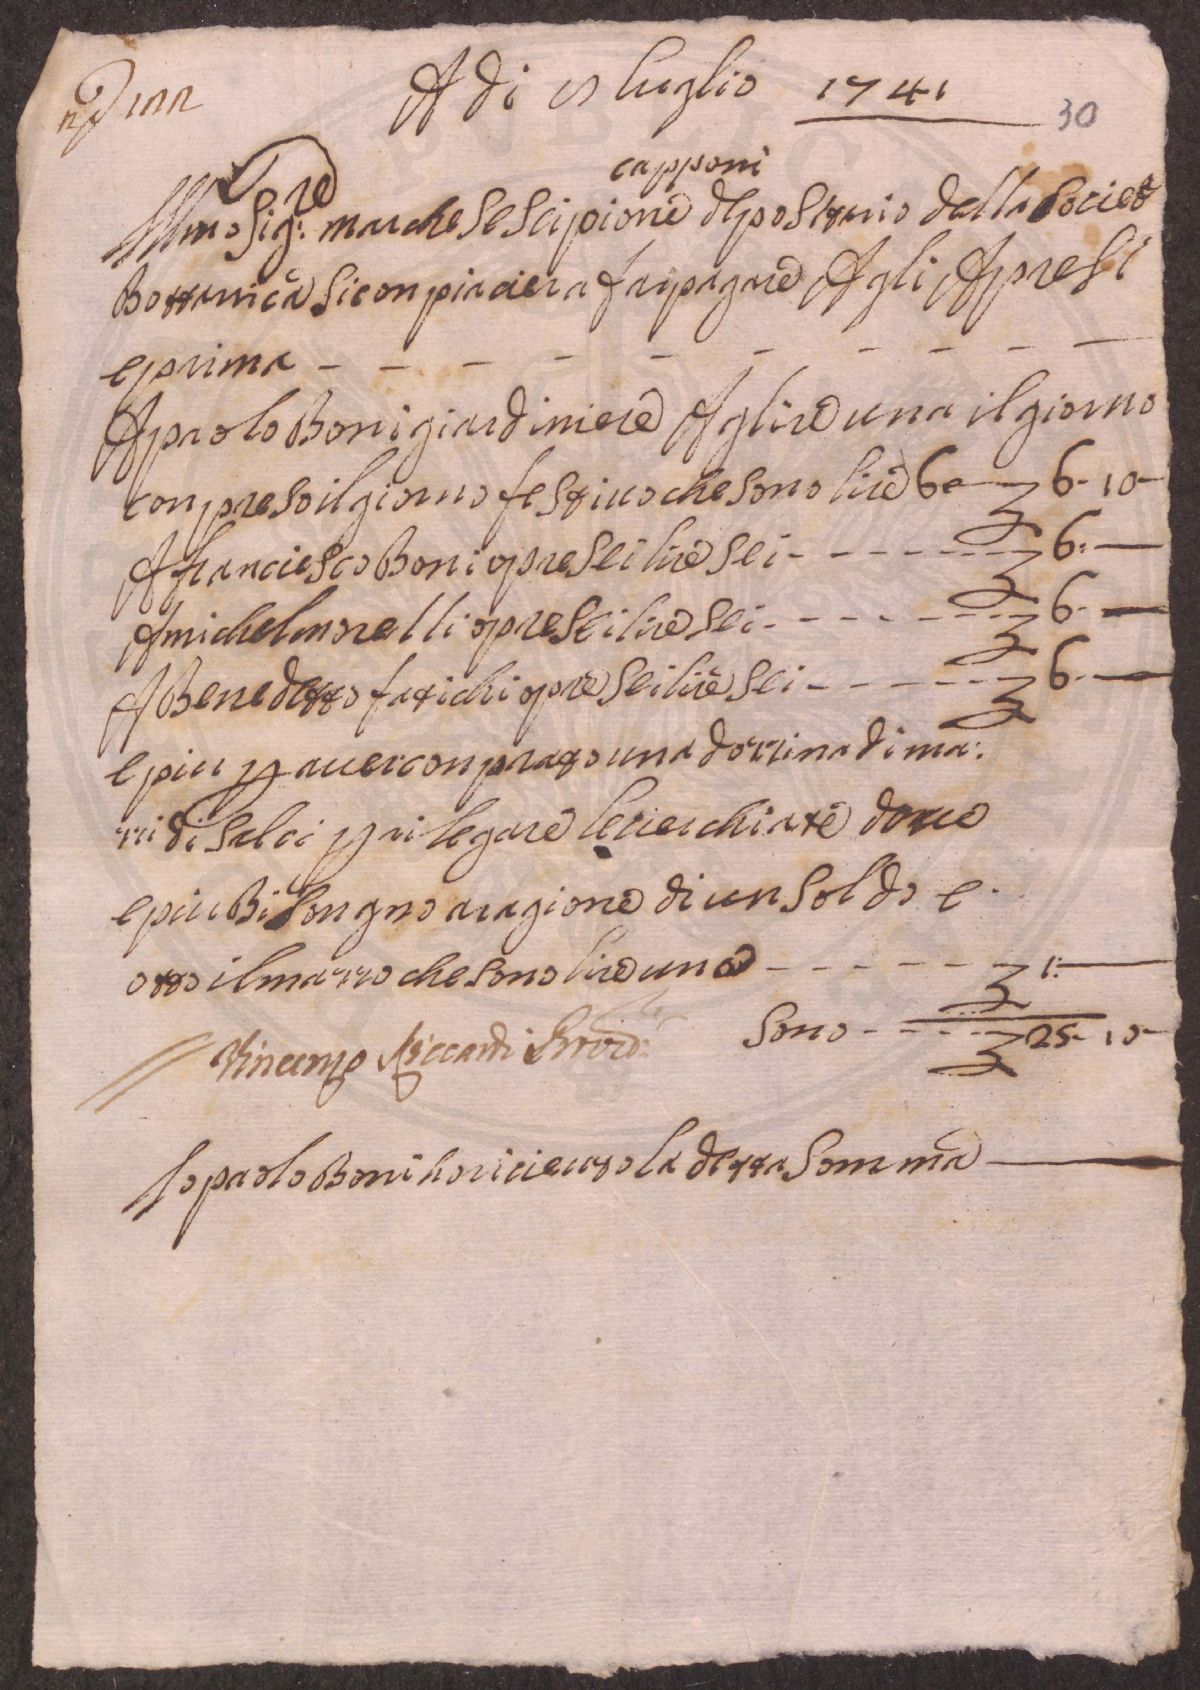 A di 15 luglio 1741
30
capponi
Illmo Sig:re marchese Scipione depositario della Societa
Bottanica si conpiaciera far pagare Agli Apresi
e prima
A paolo Boni giardiniere A lire una il giorno
conpreso il giorno festivo che sono lire 6 £ 6. 10
A franciesco Boni opre sei lire sei £ 6:
A michel morelli opre sei lire sei £ 6.
A Benedetto fatichi opre sei lire sei £ 6.
e piu p aver conprato una dozzina di ma:
zzi di salci p rilegare le cierchiate dove
e piu Bisongno a ragione di un soldo e
otto il mazzo che sono lire una £ 1:
sono £ 25. 10
Vincenzo Riccardi Provd:
Io paolo Boni ho riceuto la detta somma